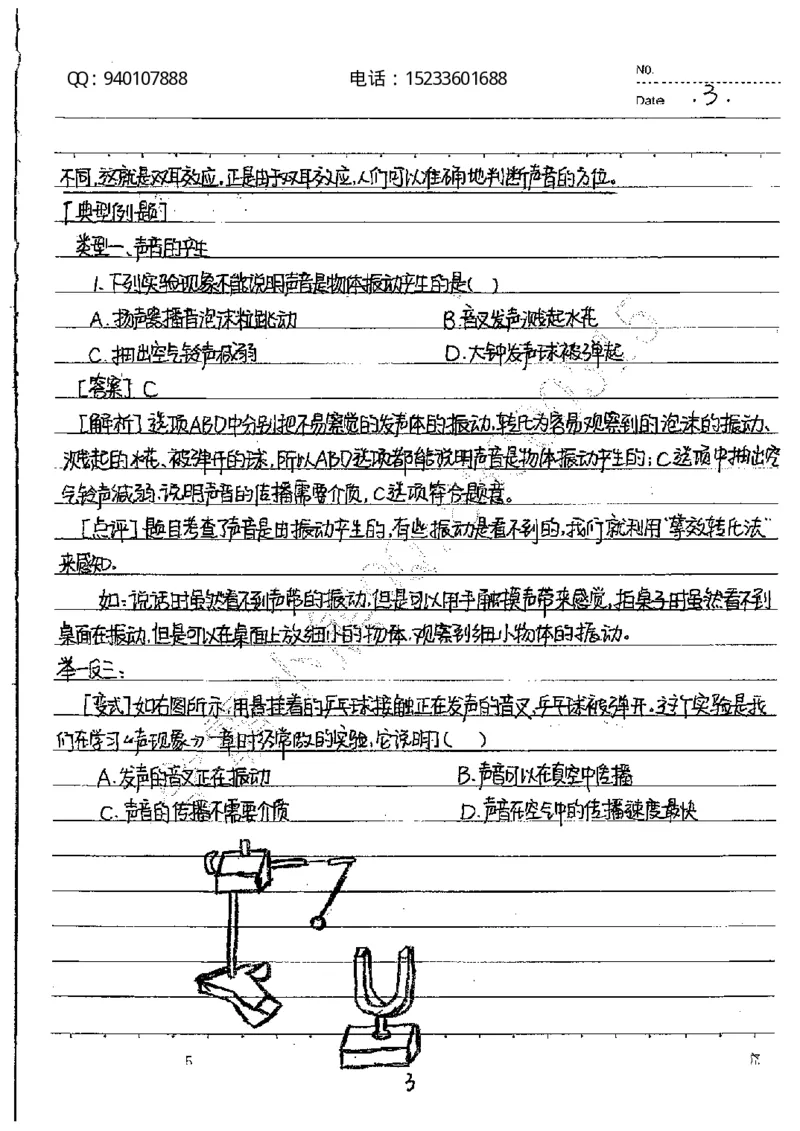 QQ：940107888 电话：15233601688 No.
Date .3.
不同,这就是双耳效应,正是由于双耳效应,人们可以准确地判断声音的方位。
[典型例题]
类型一、声音的产生
1.下列实验现象不能说明声音是物体振动产生的是( )
A.扬声器播音泡沫粒跳动 B.音叉发声溅起水花
C.抽出空气铃声减弱 D.大钟发声球被弹起
[答案] C
[解析]选项ABD中分别把不易察觉的发声体的振动,转化为容易观察到的泡沫的振动、
溅起的水花、被弹开的球,所以ABD选项都能说明声音是物体振动产生的;C选项中抽出空
气铃声减弱,说明声音的传播需要介质,C选项符合题意。
[点评]题目考查了声音是由振动产生的,有些振动是看不到的,我们就利用“等效转化法”
来感知。
如:说话时虽然看不到声带的振动,但是可以用手触摸声带来感觉,拍桌子时虽然看不到
桌面在振动,但是可以在桌面上放细小的物体,观察到细小物体的振动。
举一反三:
[变式]如右图所示,用悬挂着的乒乓球接触正在发声的音叉,乒乓球被弹开。这个实验是我
们在学习《声现象》一章时经常做的实验,它说明了( )
A.发声的音叉正在振动 B.声音可以在真空中传播
C.声音的传播不需要介质 D.声音在空气中的传播速度最快
5
3